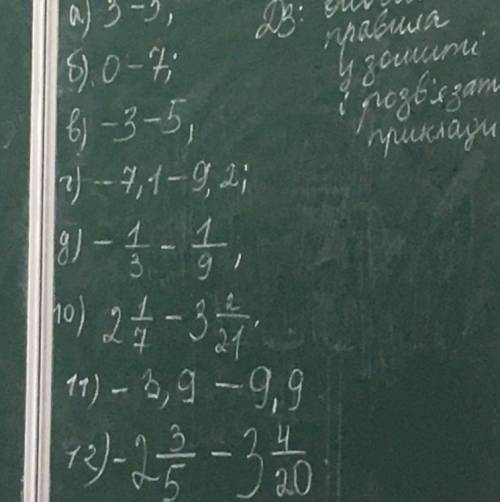 а) 3-5;
б). 0-7;
в) -3-5,
г) -7,1-9,2;
д) -1/3 - 1/9,
10) 2 1/7 - 3 2/21.
11) -3,9-9,9
12) -2 3/5 - 3 4/20
ДЗ:
правила
у зошиті
і розв'язат
приклади